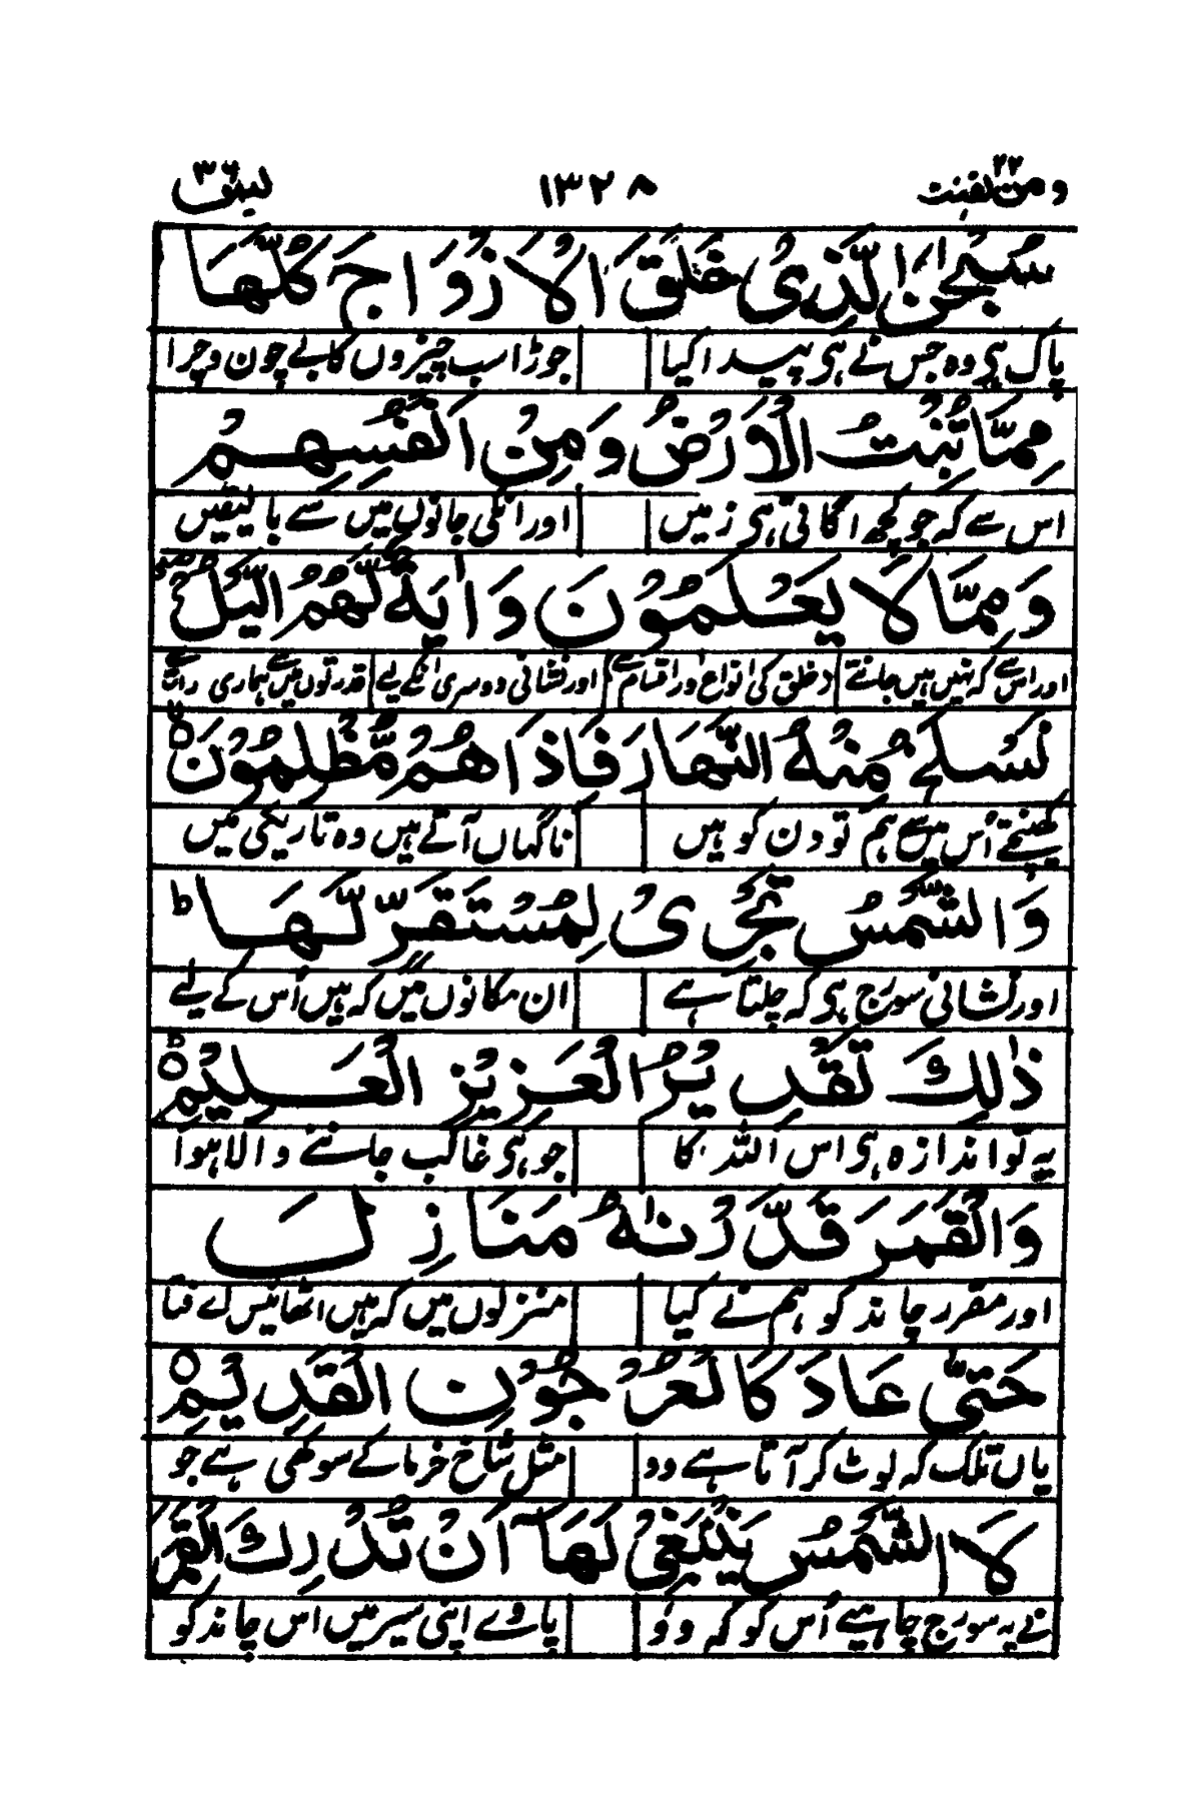 ومن یقنت ۲۲ ۱۳۲۸ یٰسٓ ۳۶
سُبْحٰنَ الَّذِیْ خَلَقَ الْاَزْوَاجَ كُلَّهَا
پاک ہی وہ جس نے ہی پیدا کیا جوڑا سب چیزوں کا بے چون وچرا
مِمَّا تُنْۢبِتُ الْاَرْضُ وَمِنْ اَنْفُسِهِمْ
اس سے کہ جو کچھ اگاتی ہی زمیں اور انکی جانوں میں سے بالیقیں
وَمِمَّا لَا یَعْلَمُوْنَ وَاٰیَةٌ لَّهُمُ الَّیْلُ ۖۚ
اور اس سے کہ نہیں ہیں جانتے خلق کی انواع و اقسام سے اور نشانی دوسری انکے لیے قدرتوں میں سے ہماری رات ہے
نَسْلَخُ مِنْهُ النَّهَارَ فَاِذَا هُمْ مُّظْلِمُوْنَ ۙ
کھینچتے اُس میں سے ہم تو دن کو ہیں ناگہاں آتے ہیں وہ تاریکی میں
وَالشَّمْسُ تَجْرِیْ لِمُسْتَقَرٍّ لَّهَا ؕ
اور نشانی سورج ہی کہ چلتا ہے ان مکانوں میں کہ ہیں اُس کے لیے
ذٰلِكَ تَقْدِیْرُ الْعَزِیْزِ الْعَلِیْمِ ؕ
یہ تو اندازہ ہی اس اللہ کا جو ہی غالب جاننے والا ہوا
وَالْقَمَرَ قَدَّرْنٰهُ مَنَازِلَ
اور مقرر چاند کو ہم نے کیا منزلوں میں کہ ہیں اٹھائیس لے فتا
حَتّٰی عَادَ كَالْعُرْجُوْنِ الْقَدِیْمِ ○
یاں تلک کہ لوٹ کر آتا ہے وو مثل شاخ خرما کے سوکھی ہے جو
لَا الشَّمْسُ یَنْۢبَغِیْ لَهَاۤ اَنْ تُدْرِكَ الْقَمَرَ
نے یہ سورج چاہیے اُس کو کہ وو پاوے اپنی سیر میں اس چاند کو